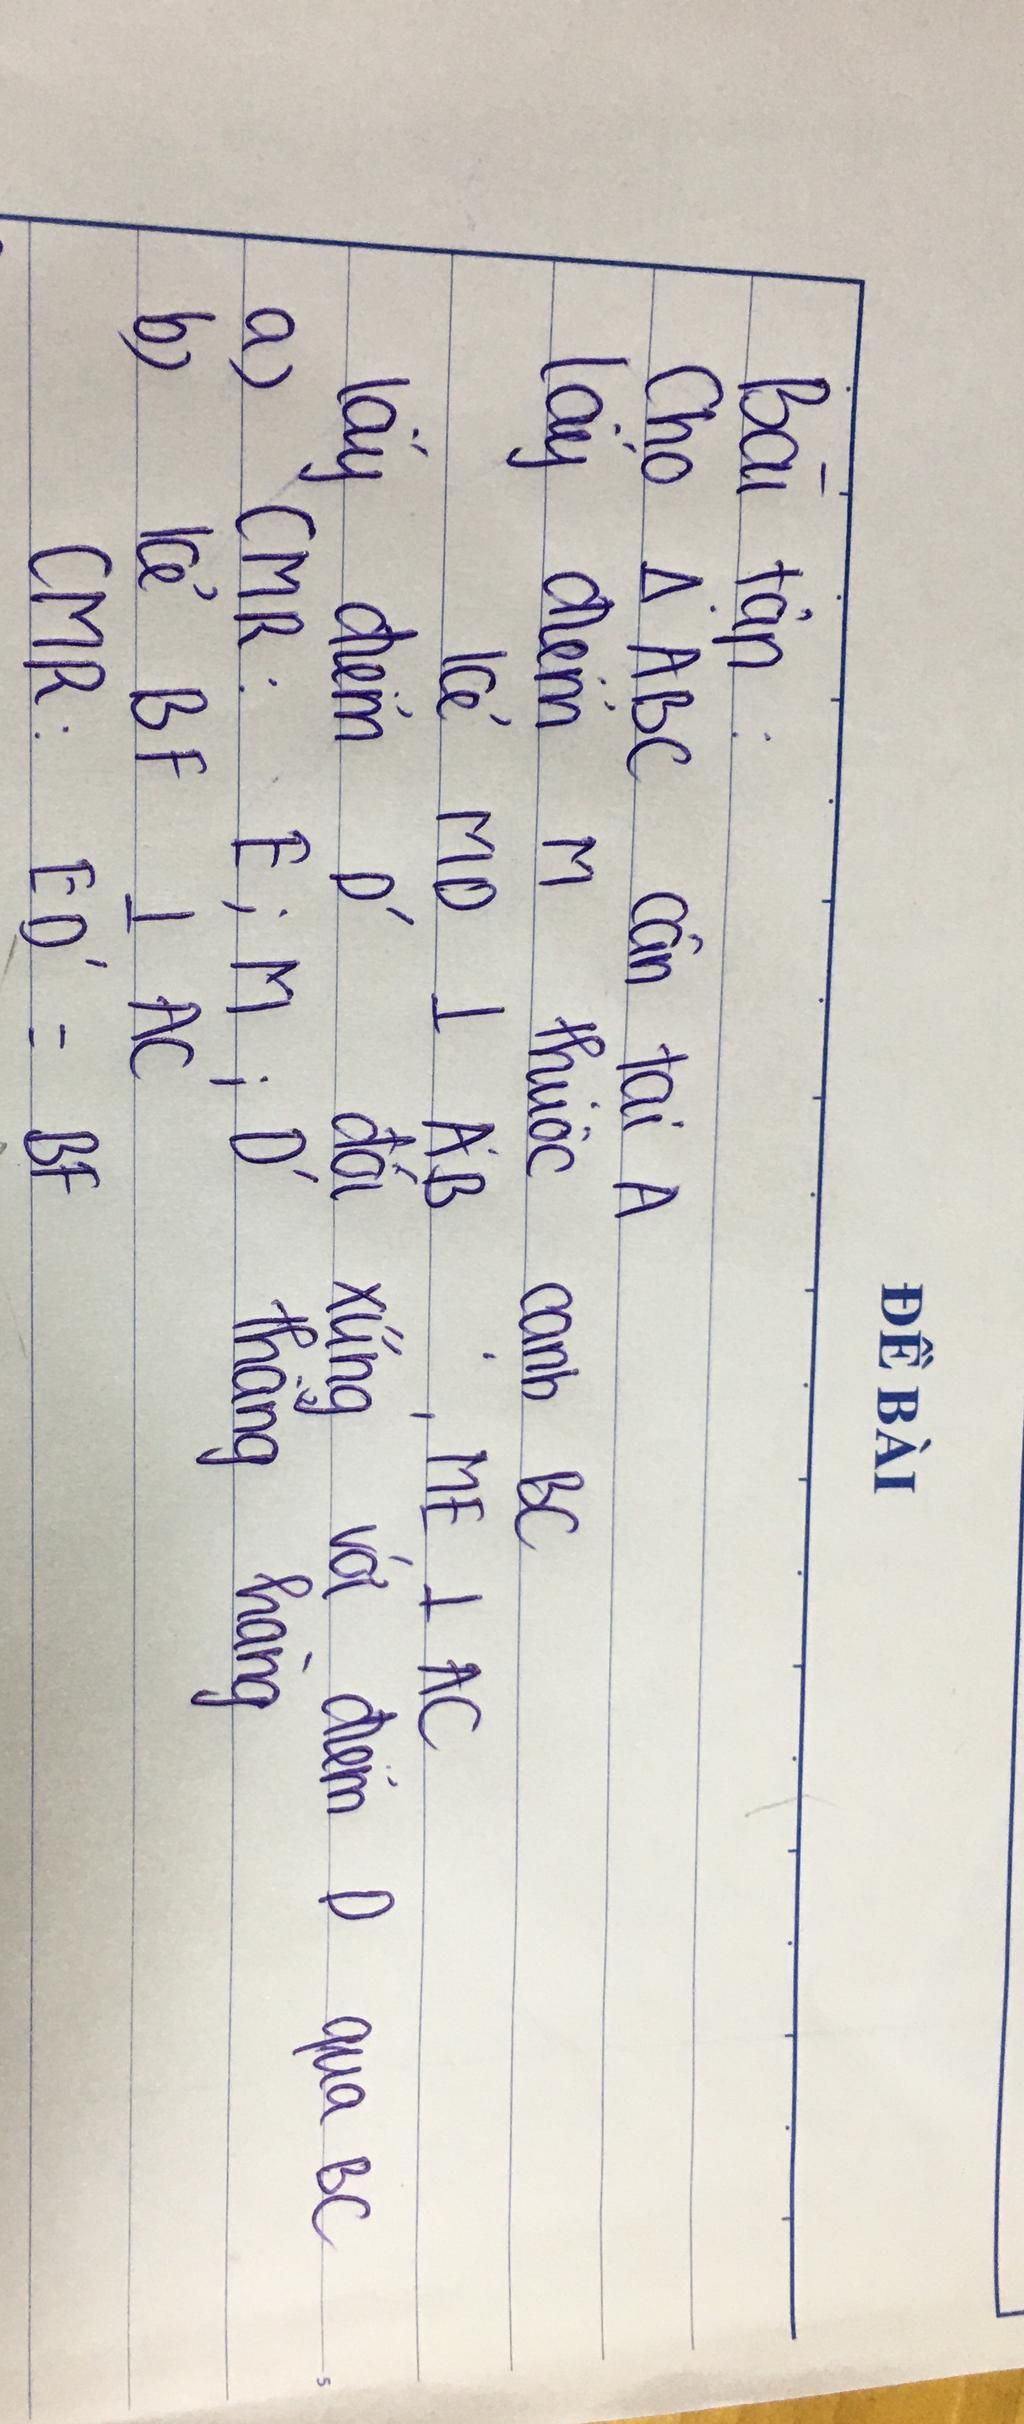 ĐỀ BÀI
Bài tập:
Cho Δ ABC cân tại A
lấy điểm M thuộc cạnh BC
kẻ MD ⊥ AB, ME ⊥ AC
lấy điểm D' đối xứng với điểm D qua BC
a) CMR: E; M; D' thẳng hàng
b) kẻ BF ⊥ AC
CMR: ED' = BF
5